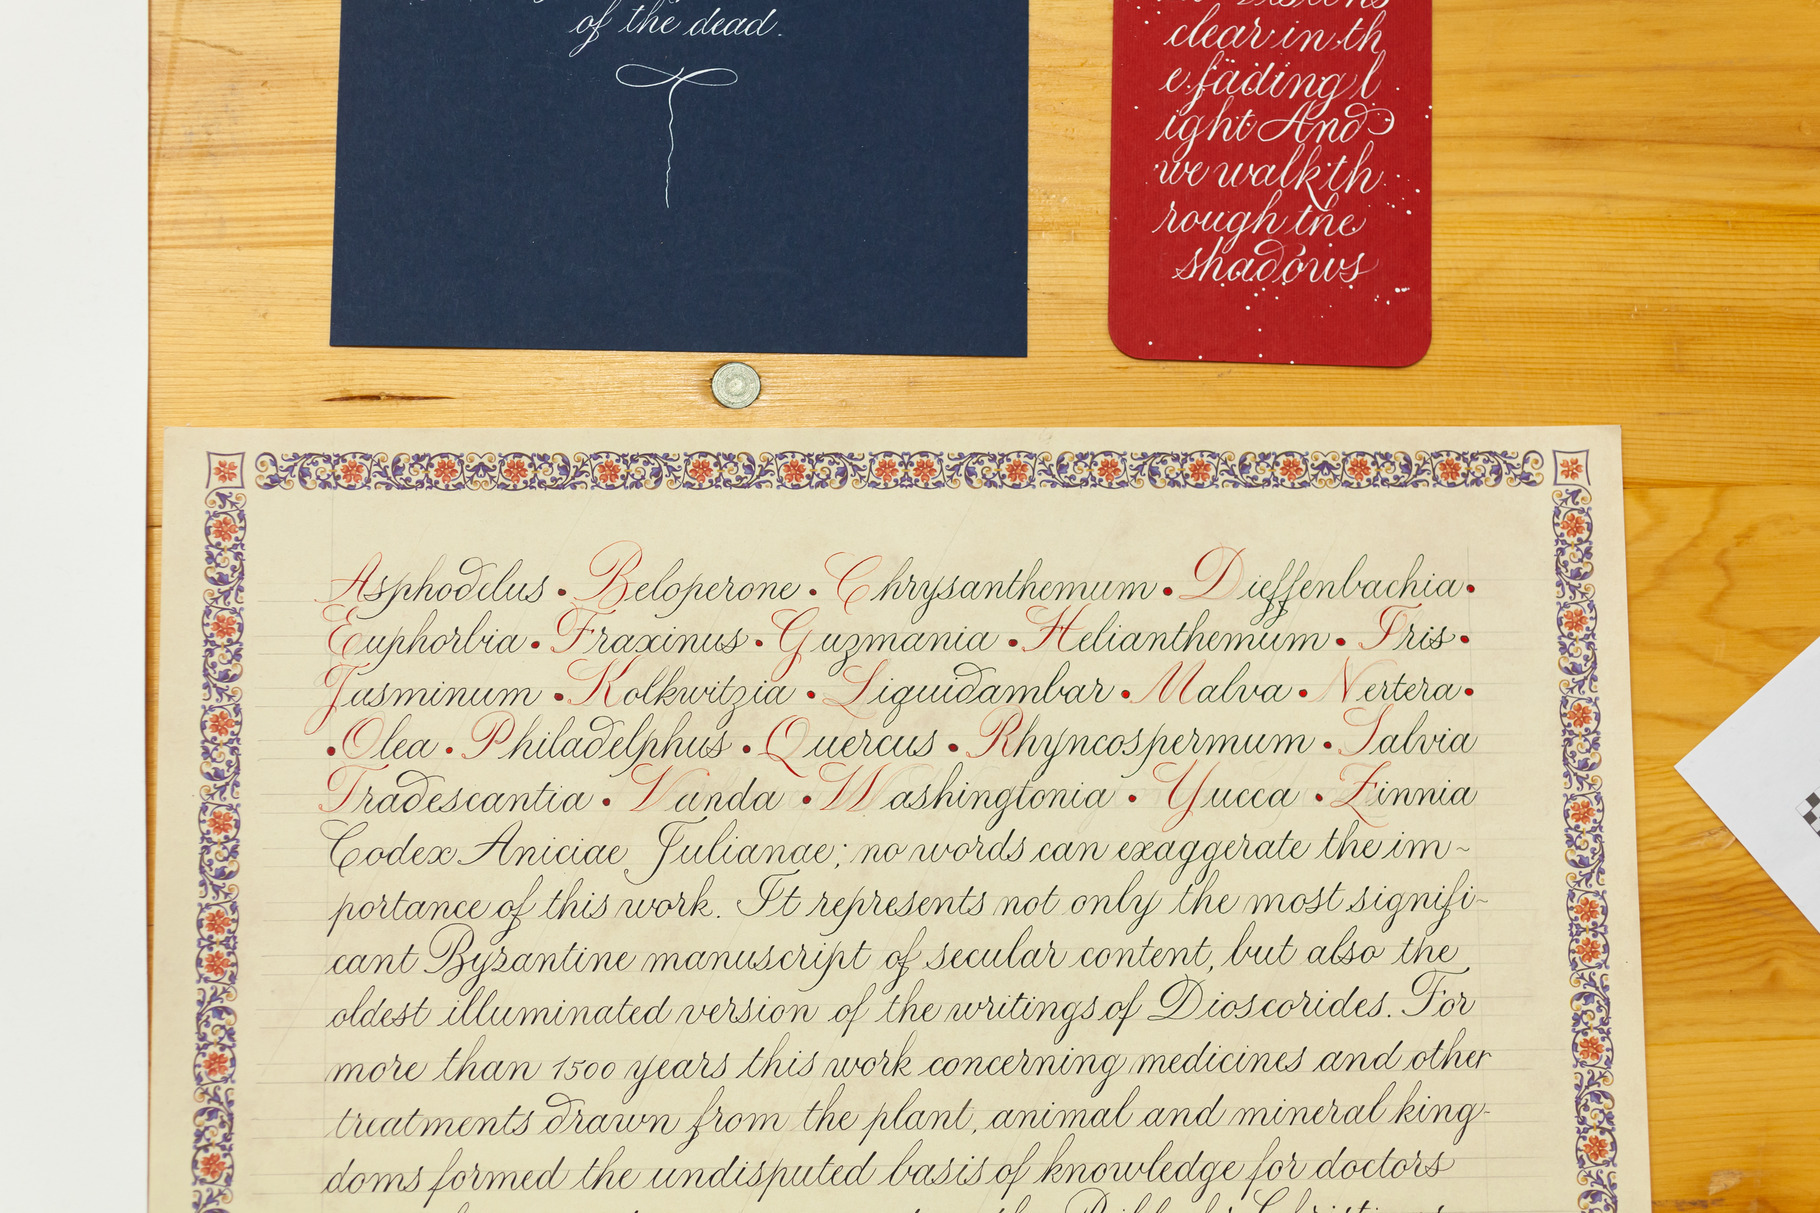 of the dead.
clear in th
e fading l
ight And
we walk th
rough the
shadows
Asphodelus • Beloperone • Chrysanthemum • Dieffenbachia •
Euphorbia • Fraxinus • Guzmania • Helianthemum • Iris •
Jasminum • Kolkwitzia • Liquidambar • Malva • Nertera •
• Olea • Philadelphus • Quercus • Rhyncospermum • Salvia
Tradescantia • Vanda • Washingtonia • Yucca • Zinnia
Codex Aniciae Julianae; no words can exaggerate the im~
portance of this work. It represents not only the most signifi~
cant Byzantine manuscript of secular content, but also the
oldest illuminated version of the writings of Dioscorides. For
more than 1500 years this work concerning medicines and other
treatments drawn from the plant, animal and mineral king-
doms formed the undisputed basis of knowledge for doctors